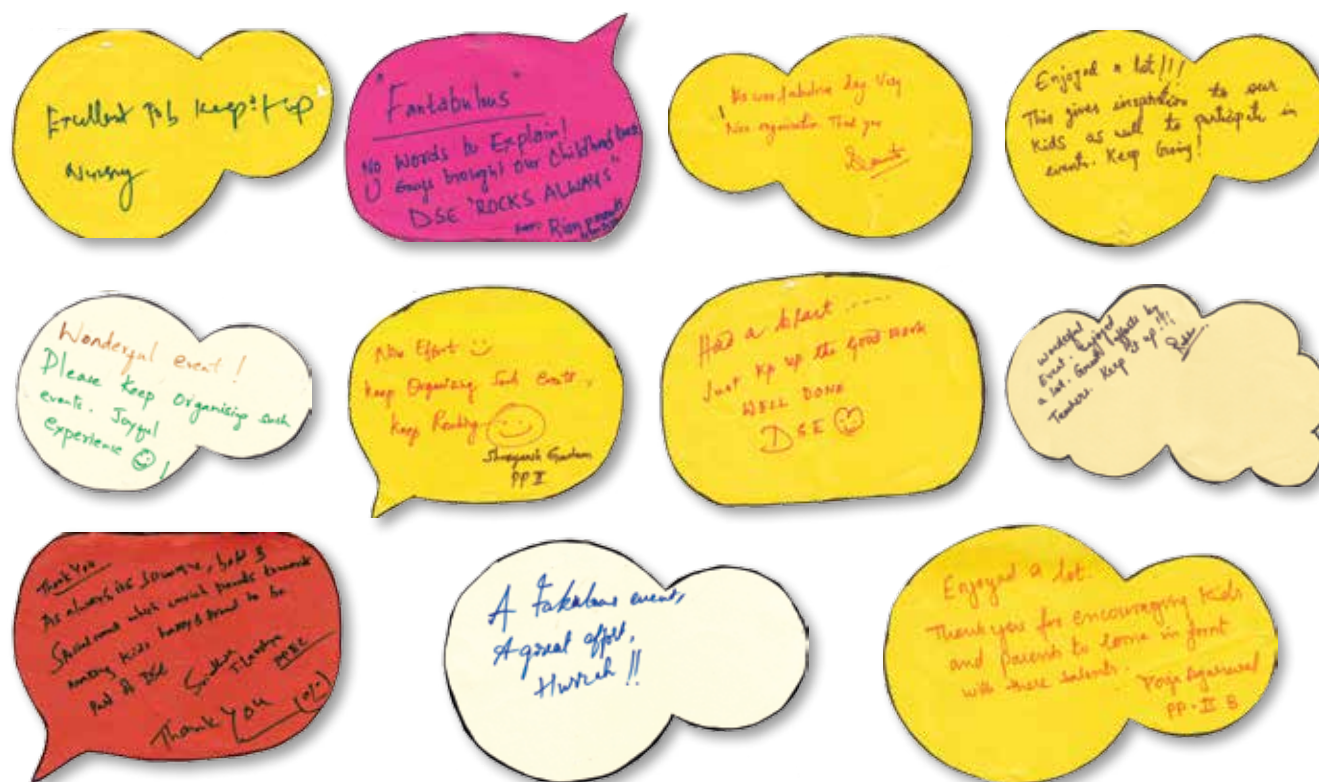 Excellent Job Keep it up
Nursery
"Fantabulus"
No Words to Explain!
Guys brought our Childhood back
DSE "ROCKS ALWAYS"
from:
day. Very
Nice organisation. Thank you
Enjoyed a lot!!!
This gives inspiration to our
kids as well to participate in
events. Keep Going!
Wonderful event!
Please Keep Organising such
events. Joyful
experience
Nice Effort
Keep Organizing Such events,
Keep Reading
Gautam
PP II
Had a blast .....
Just kp up the good work
WELL DONE
DSE
Wonderful
Event. Enjoyed
a lot. Great efforts by
Teachers. Keep it up!!!
Thank You
As always its
which enrich
kids
part of DSE
Thank You
A Fabulous event,
A great effort,
Hurrah !!
Enjoyed a lot.
Thank you for encouraging Kids
and parents to come in front
with there talents.
Pooja Agarwal
PP-II B